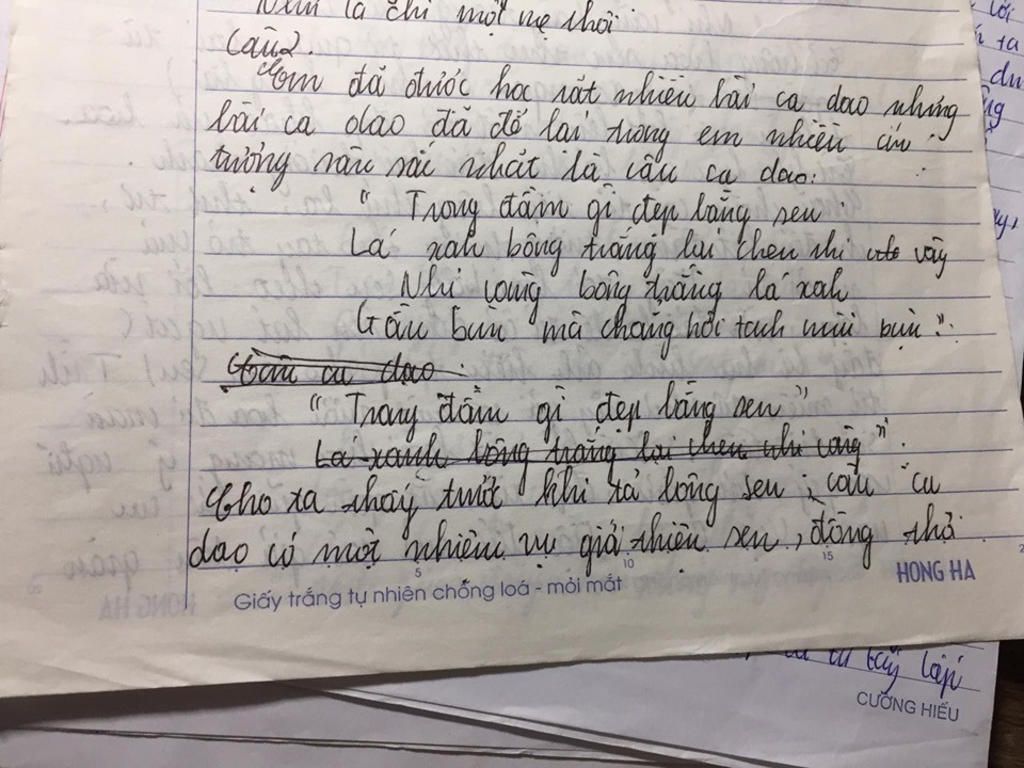 Nếm là chỉ một mẹ thôi
Câu2.
Em đã được học rất nhiều bài ca dao những
bài ca dao đã để lại trong em nhiều ấn
tượng sâu sắc nhất là câu ca dao:
" Trong đầm gì đẹp bằng sen
Lá xah bông trắng lại chen nhi vây
Nhi vong bông trắng lá xah
Gần bùn mà chẳng hôi tanh mùi bùn".
Câu ca dao
"Trong đầm gì đẹp bằng sen"
Lá xanh bông trắng lại chen nhi vàng".
Cho ta thấy trướt khi tả bông sen, câu ca
dao có một nhiệm vụ giải thiện sen, đồng thờ
5 10 15 2
HONG HA
Giấy trắng tự nhiên chống loá - mỏi mắt
CƯỜNG HIẾU